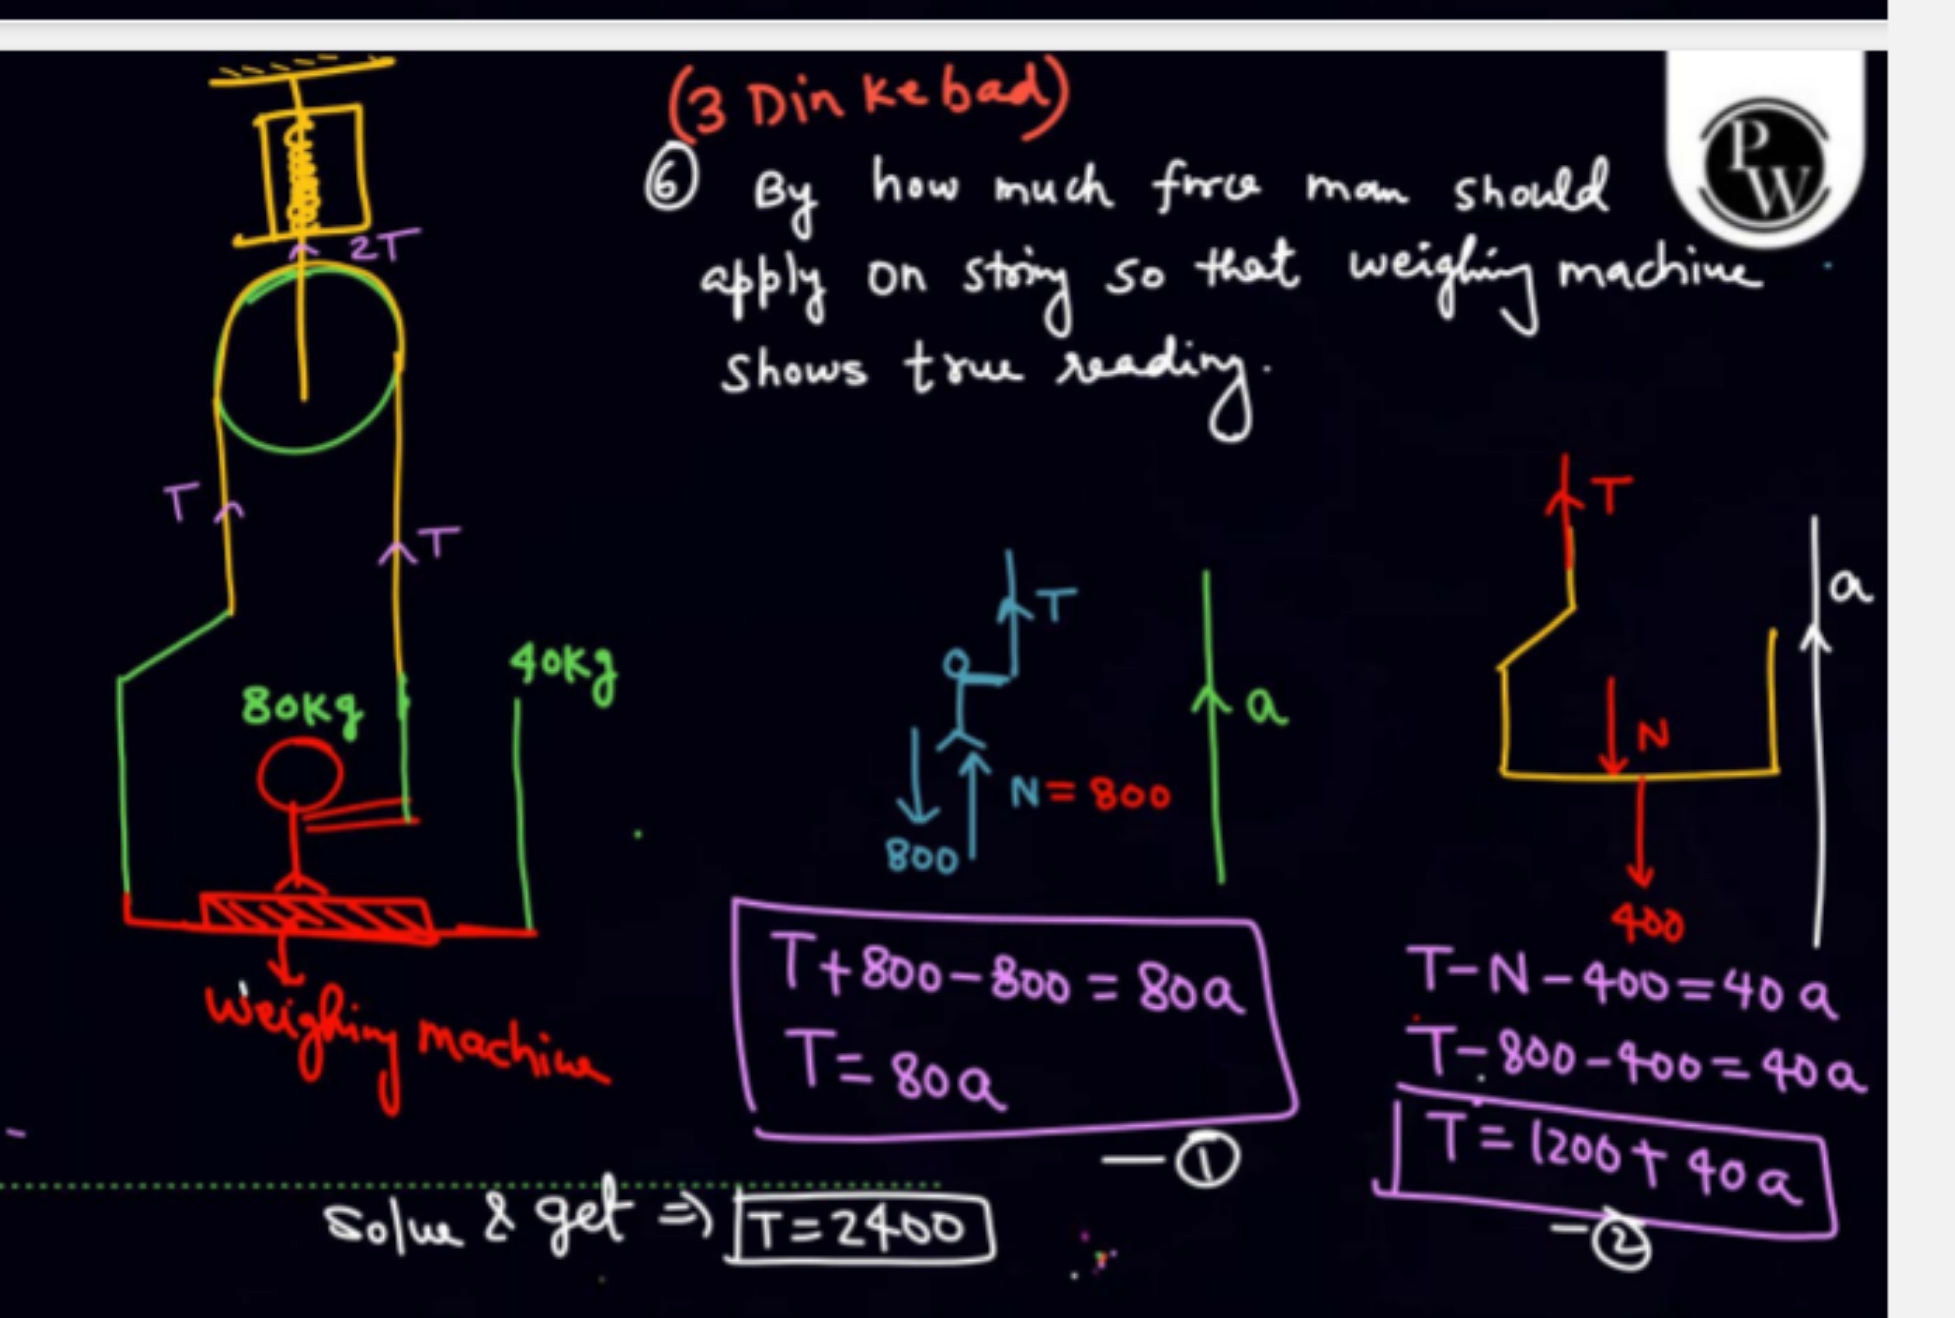 (3 Din ke bad)
⑥ By how much force man should
apply on string so that weighing machine
shows true reading.
P
W
2T
T
T
40kg
80kg
Weighing machine
T
N = 800
800
a
T
N
400
a
T+800-800=80a
T=80a
-①
T-N-400=40a
T-800-400=40a
T=1200+40a
-②
Solve & get ⇒ T=2400